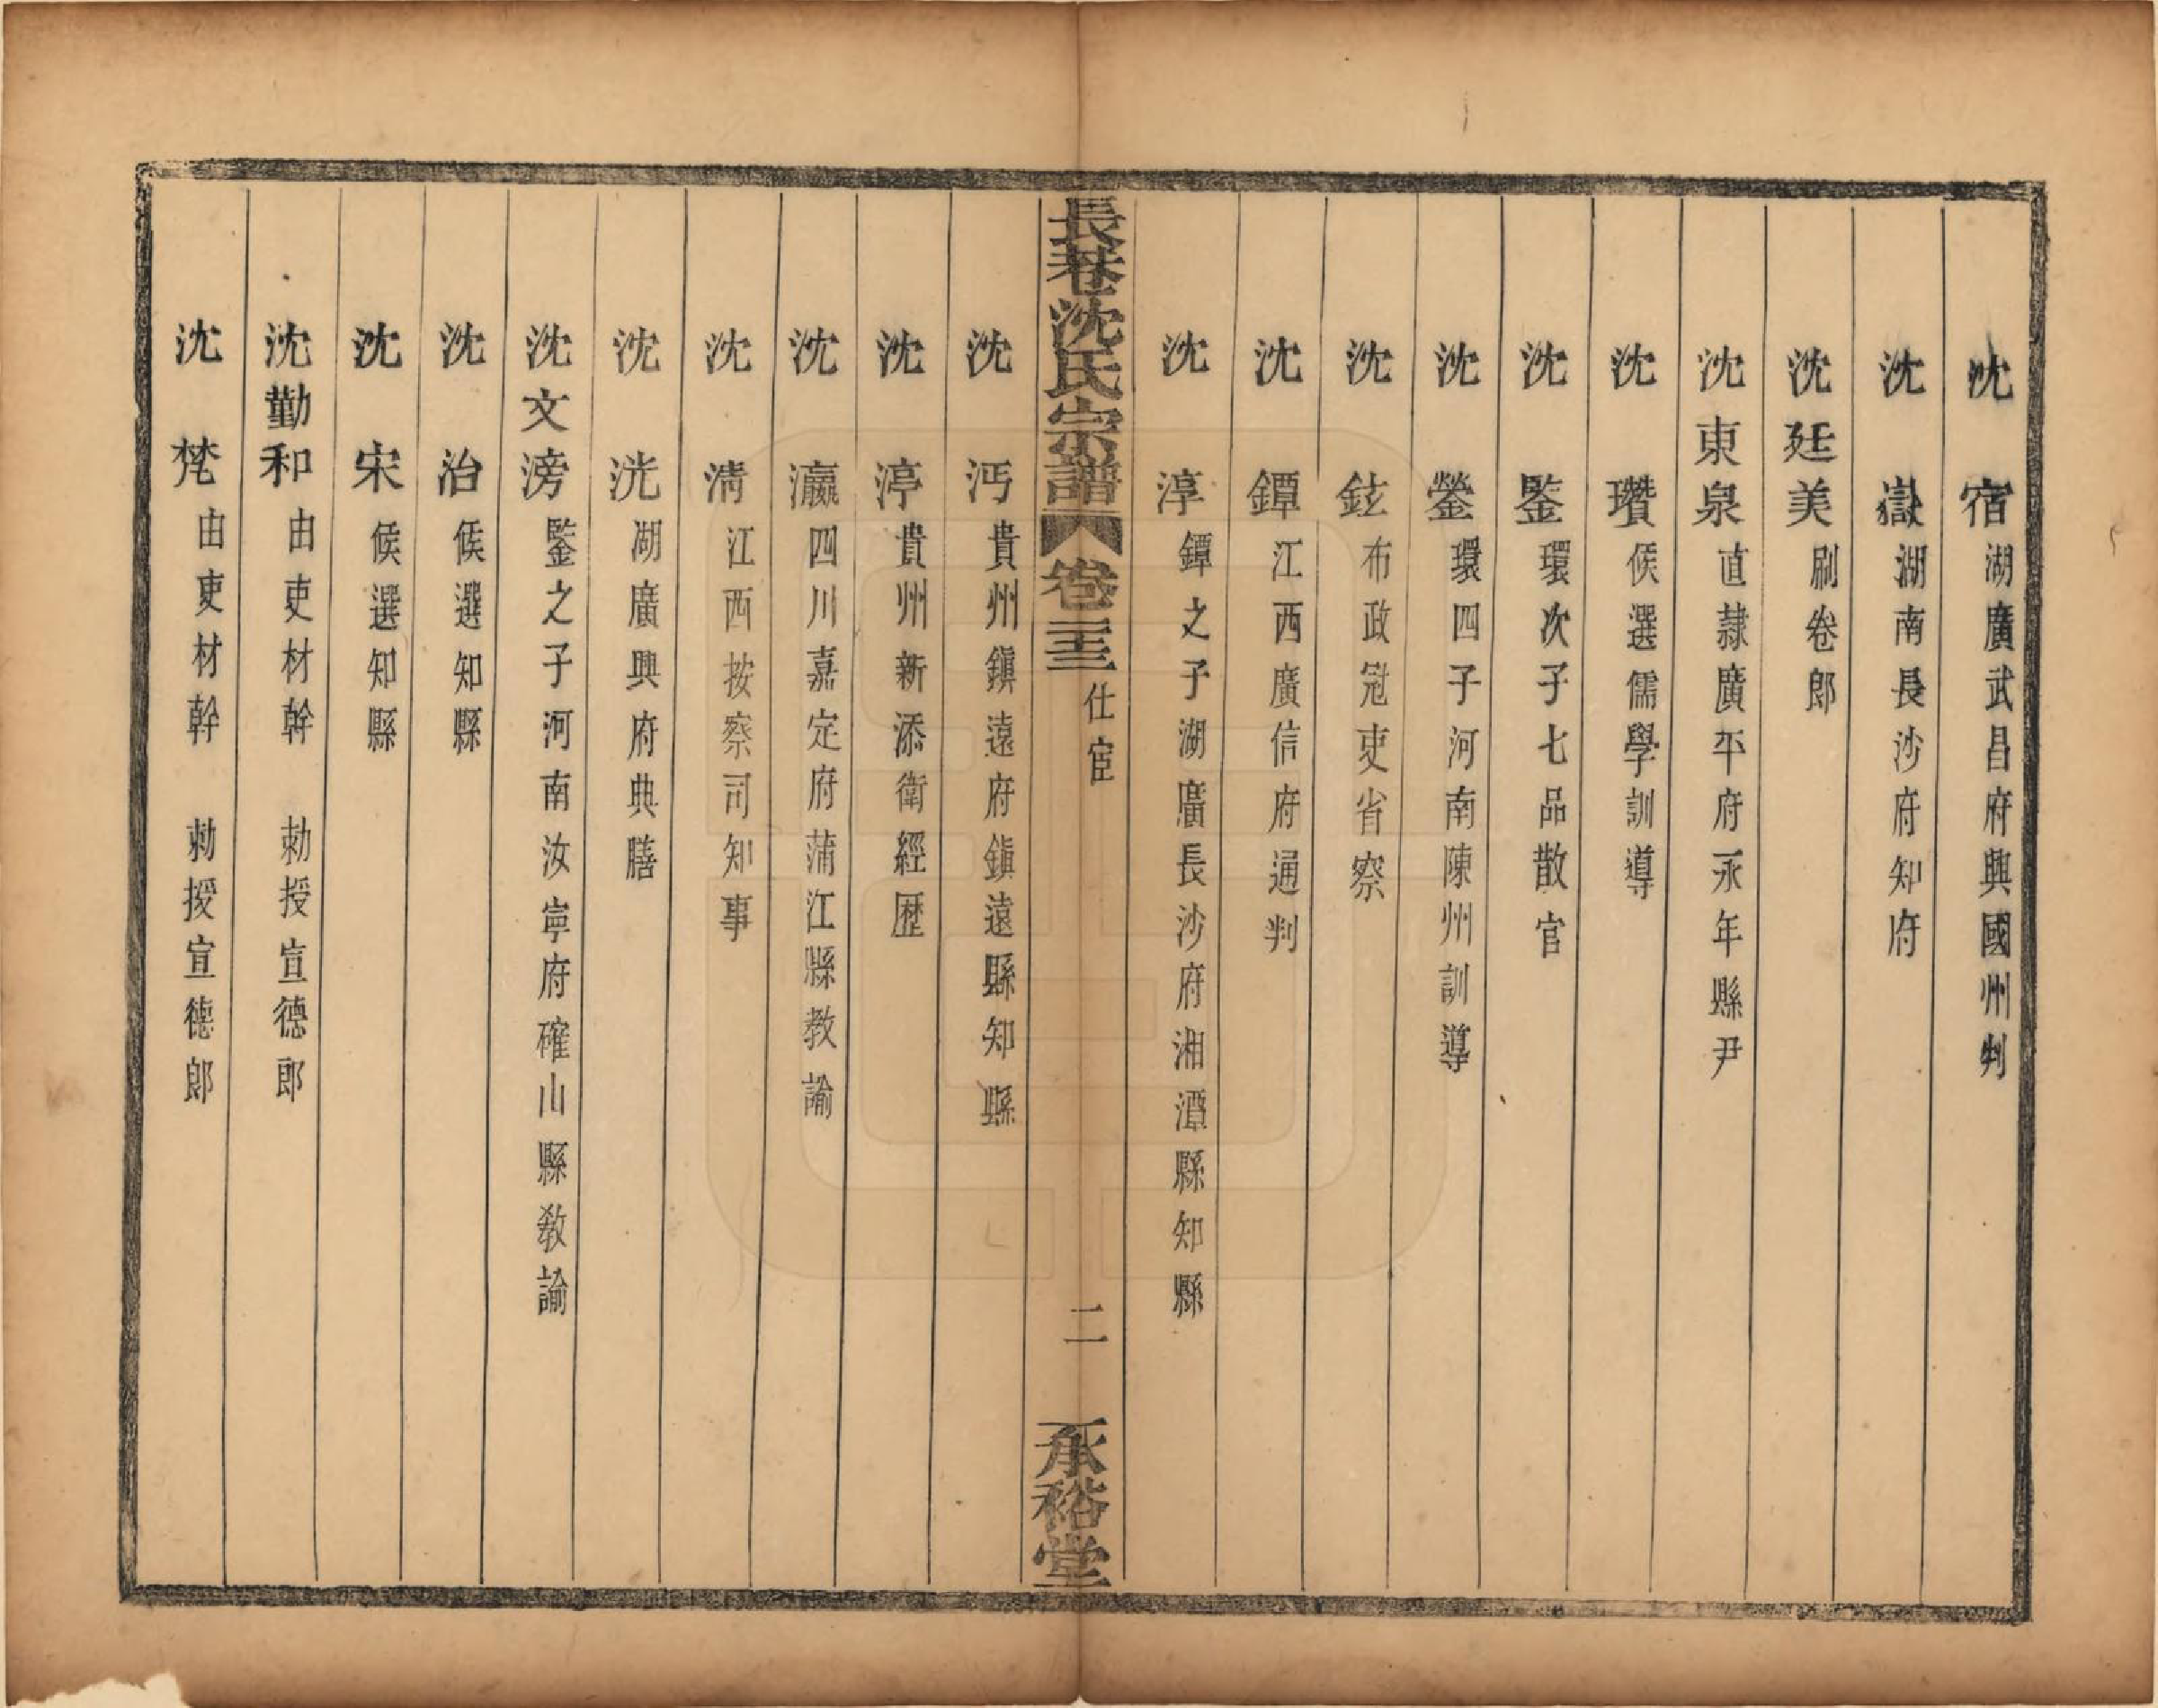 沈　宿湖廣武昌府興國州判
沈　嶽湖南長沙府知府
沈廷美刷卷郎
沈東泉直隸廣平府永年縣尹
沈　瓚候選儒學訓導
沈　鋻環次子七品散官
沈　鎣環四子河南陳州訓導
沈　鉉布政冠吏省察
沈　鐔江西廣信府通判
沈　淳鐔之子湖廣長沙府湘潭縣知縣
長巷沈氏宗譜　卷三十三　仕宦　二　承裕堂
沈　沔貴州鎭遠府鎭遠縣知縣
沈　渟貴州新添衛經歷
沈　瀛四川嘉定府蒲江縣教諭
沈　淸江西按察司知事
沈　洸湖廣興府典膳
沈文滂鋻之子河南汝寧府確山縣教諭
沈　治候選知縣
沈　宋候選知縣
沈勤和由吏材幹　勅授宣德郎
沈　梵由吏材幹　勅授宣德郎